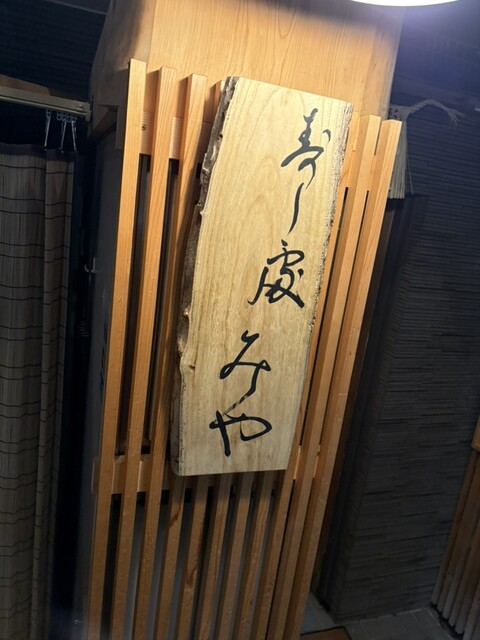 寿し處
みや